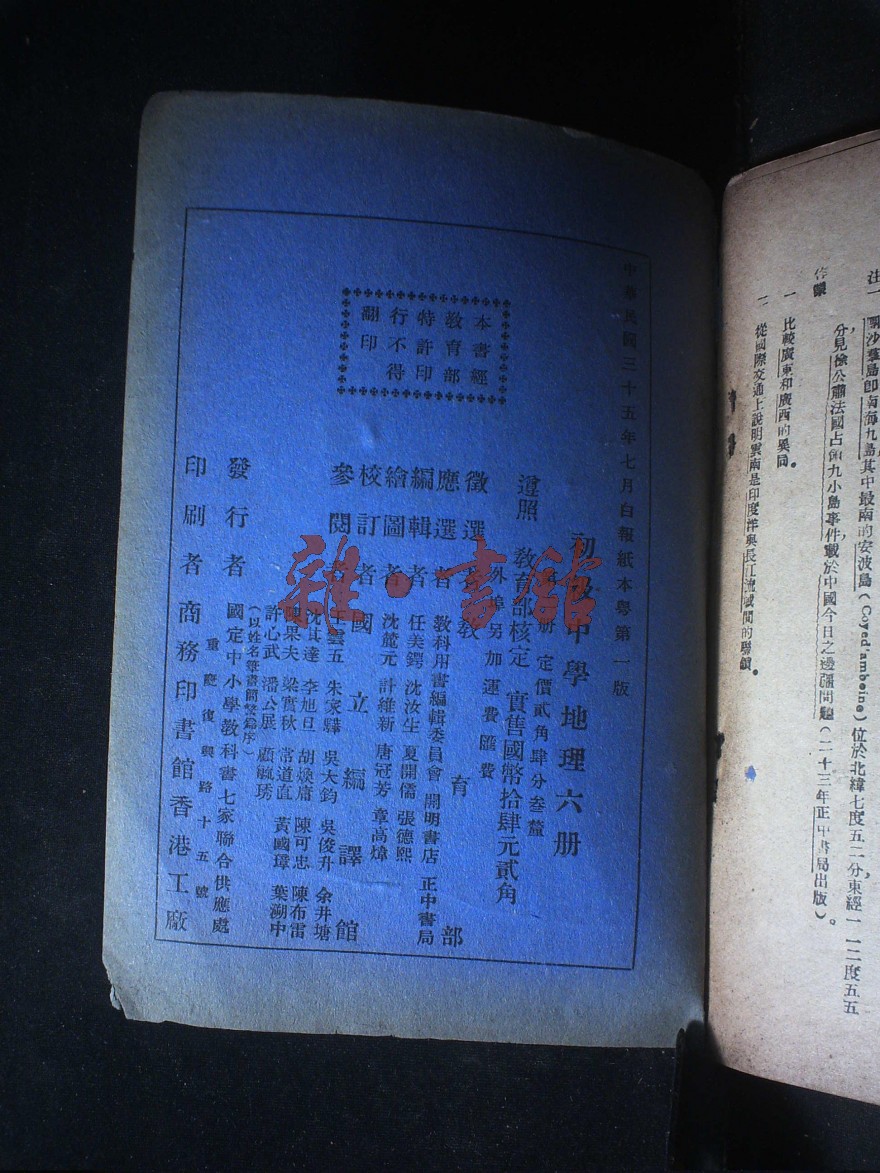 註一
團沙羣島卽南海九島其中最南的安波島(Coyed'amboine)位於北緯七度五二分東經一一二度五五
分,見徐公肅法國占領九小島事件,載於中國今日之邊疆問題(二十三年正中書局出版)。
作業
一 比較廣東和廣西的異同。
二 從國際交通上說明雲南是印度洋與長江流域間的聯鎖。
中華民國三十五年七月白報紙本粵第一版
初級中學地理六册
册 定價貳角肆分叁釐
遵照 教育部核定 實售國幣拾肆元貳角
外埠另加運費匯費
本書經
教育部
特許印
行不得
翻印
徵選者 教育部
應選者 教科用書編輯委員會 開明書店 正中書局
編輯者 任美鍔 沈汝生 夏開儒 張德熙
繪圖者 沈麓元 計維新 唐冠芳 章高煒
校訂者 國立編譯館
參閱者 王雲五 朱家驊 吳大鈞 吳俊升 余井塘
沈其達 李旭旦 胡煥庸 陳可忠 陳布雷
陳果夫 梁實秋 常道直 黃國璋 葉溯中
許心武 潘公展 顧毓琇
(以姓名筆畫簡繁為序)
發行者 國定中小學教科書七家聯合供應處
重慶復興路十五號
印刷者 商務印書館香港工廠
雜·書館